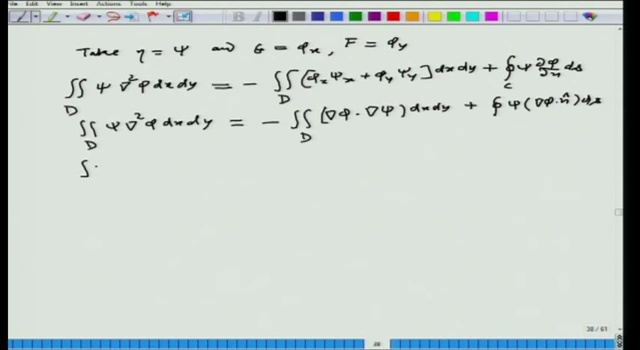 File View Insert Actions Tools Help
Take η = Ψ and G = φₓ, F = φᵧ
∬_D Ψ ∇²φ dx dy = − ∬_D [φₓ Ψₓ + φᵧ Ψᵧ] dx dy + ∮_C Ψ ∂φ/∂n ds
∬_D Ψ ∇²φ dx dy = − ∬_D (∇φ · ∇Ψ) dx dy + ∮ Ψ (∇φ · n̂) ds
∫
38 / 61
38